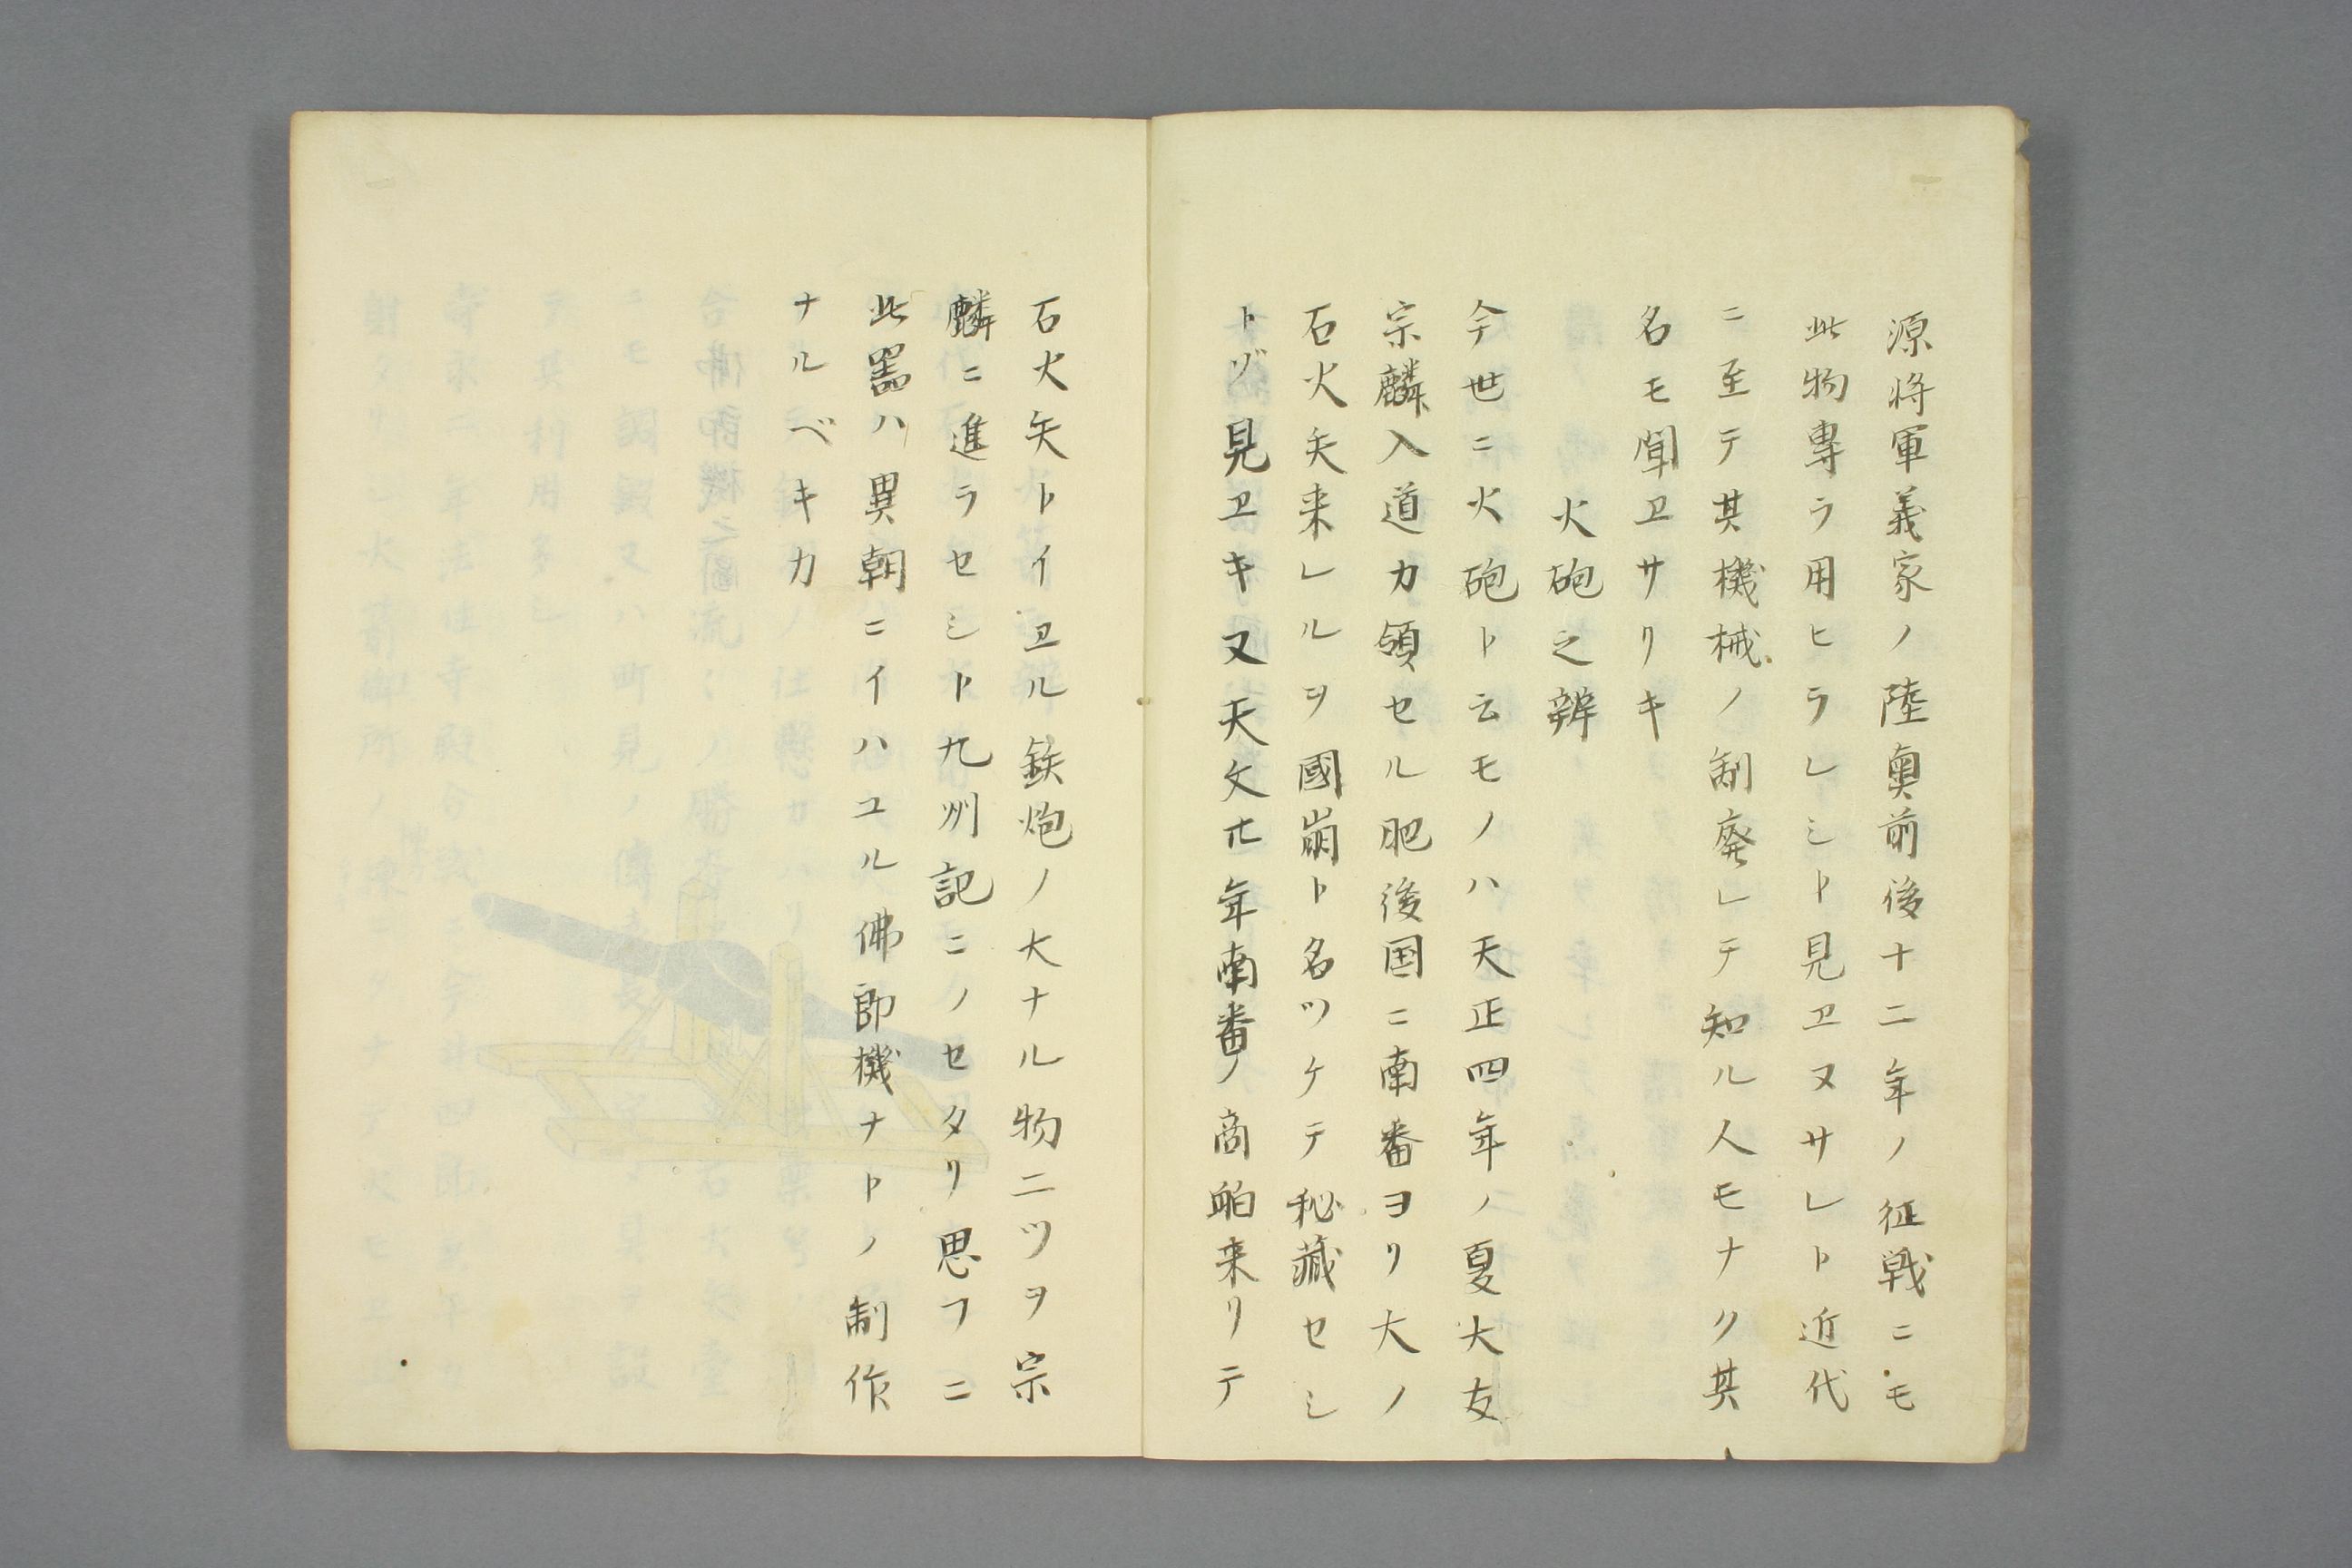 源将軍義家ノ陸奥前後十二年ノ征戦ニモ
此物專ラ用ヒラレシト見ヱヌサレト近代
ニ至テ其機械ノ制廃レテ知ル人モナク其
名モ聞ヱサリキ
火砲之辨
今世ニ火砲ト云モノハ天正四年ノ夏大友
宗麟入道カ領セル肥後国ニ南番ヨリ大ノ
石火矢来レルヲ國崩ト名ツケテ秘藏セシ
トゾ見ヱキ又天文廿年南番ノ商舶来リテ
石火矢トイヱル鉄炮ノ大ナル物二ツヲ宗
麟ニ進ラセシト九州記ニノセタリ思フニ
此噐ハ異朝ニイハユル佛郎機ナトノ制作
ナルベキカ